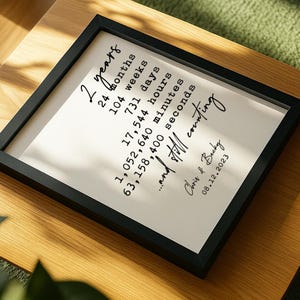 2 years
24 months
104 weeks
731 days
17,544 hours
1,052,640 minutes
63,158,400 seconds
...and still counting
Chris & Becky
08.12.2023